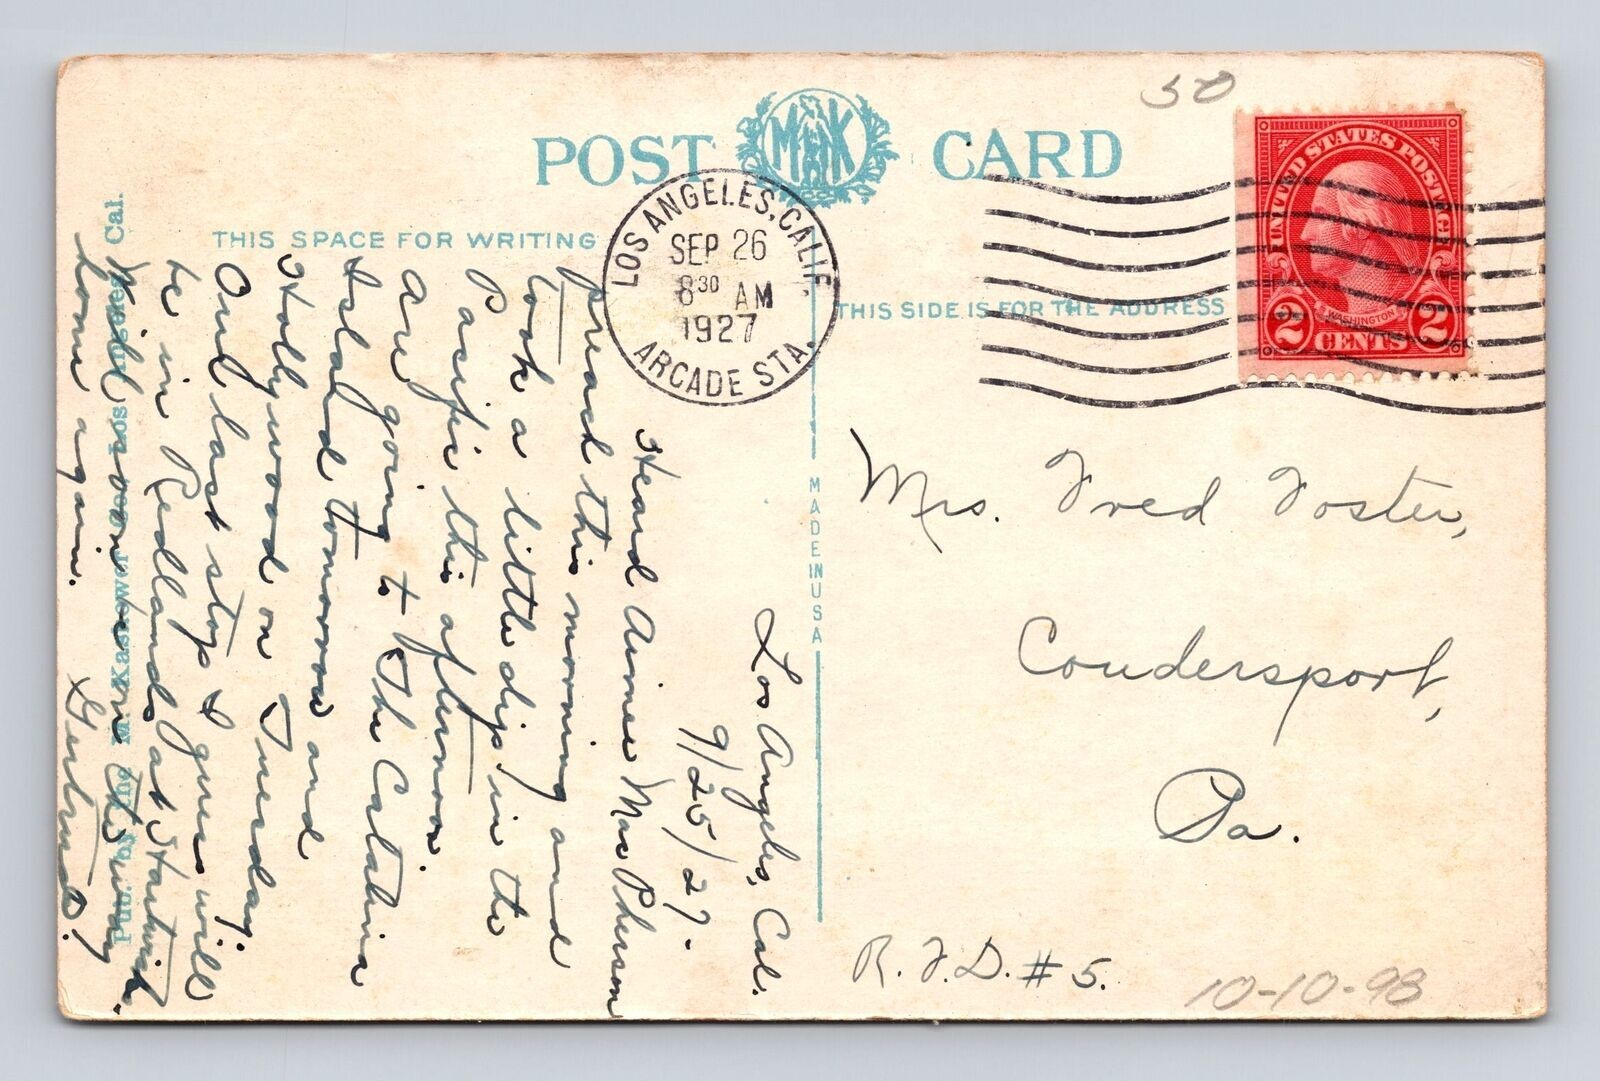 50
POST CARD
M K
UNITED STATES POSTAGE
WASHINGTON
2 CENTS 2
LOS ANGELES, CALIF.
SEP 26
8 30 AM
1927
ARCADE STA.
THIS SPACE FOR WRITING
THIS SIDE IS FOR THE ADDRESS
MADE IN USA
Los Angeles, Cal.
9/25/27.
Heard Aimee MacPherson
preach this morning and
took a little dip in the
Pacific this afternoon.
Are going to The Catalina
Island tomorrow and
Hollywood on Tuesday.
Our last stop I guess will
be in Redlands at
Will soon be on the way
home again. Gertrude.
Pub. by The M. Kashower Co., Los Angeles, Cal.
Mrs. Fred Foster,
Coudersport,
Pa.
R.F.D. #5.
10-10-98